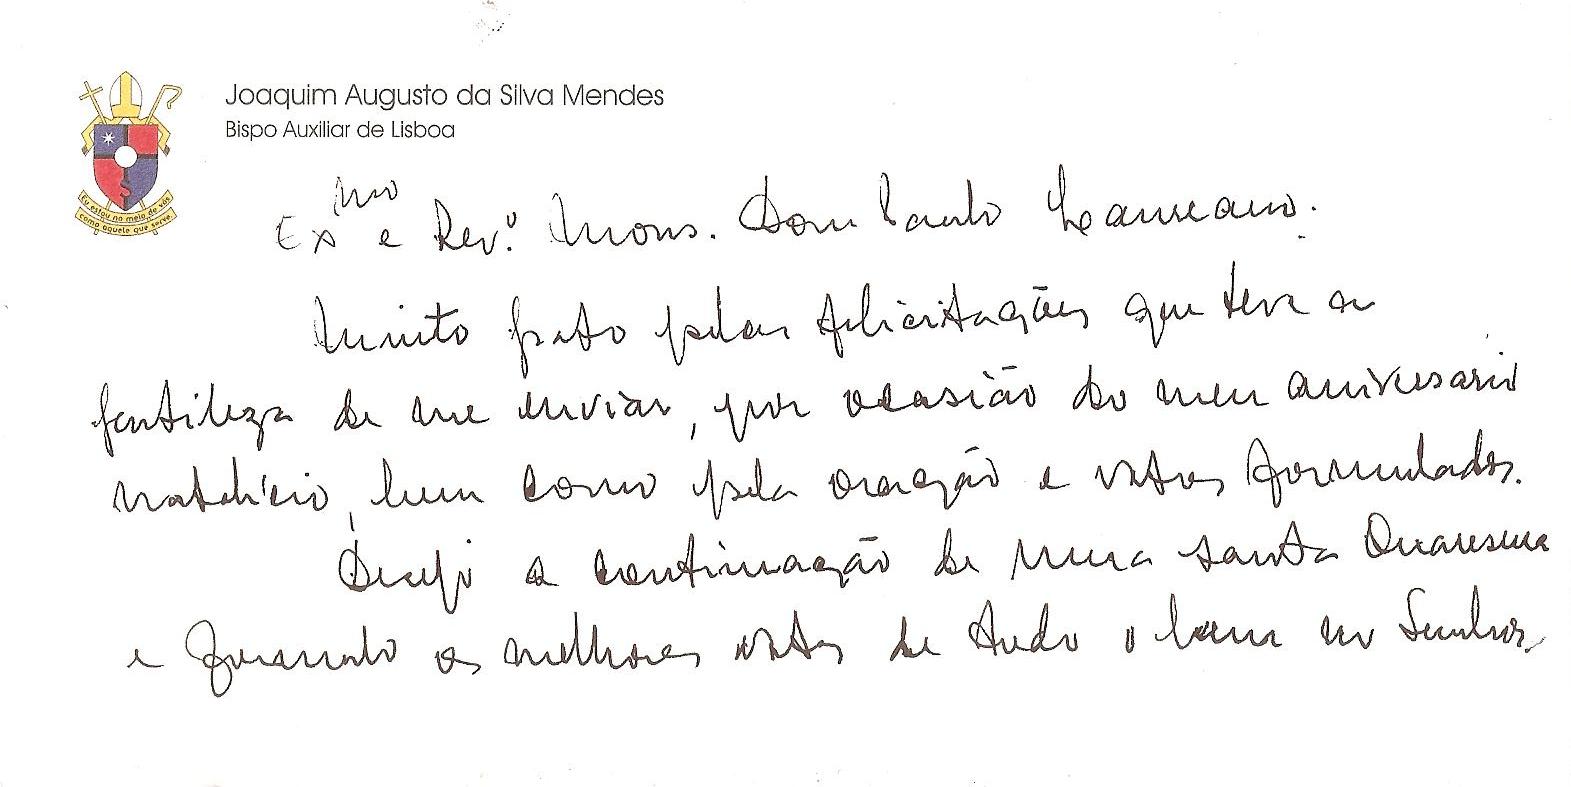 Joaquim Augusto da Silva Mendes
Bispo Auxiliar de Lisboa
Eu estou no meio de vós
como aquele que serve
Exmo e Rev.º Mons. Dom Paulo Laureano.
Muito grato pelas felicitações que teve a
gentileza de me enviar, por ocasião do meu aniversário
natalício, bem como pela oração e votos formulados.
Desejo a continuação de uma santa Quaresma
e formulo os melhores votos de tudo o bem no Senhor.